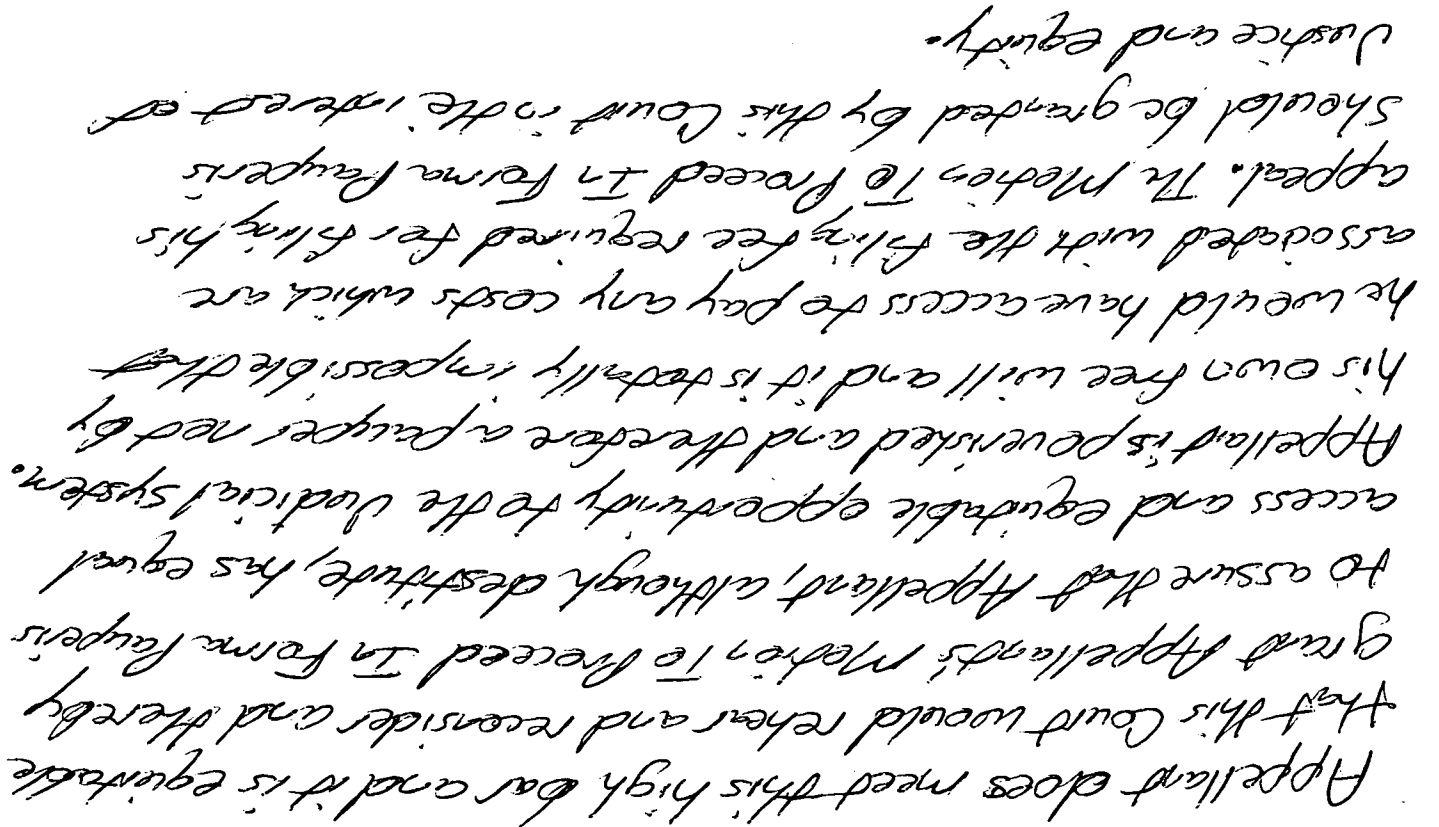 Appellant does meet this high bar and it is equitable
that this Court would rehear and reconsider and thereby
grant Appellant's Motion To Proceed In Forma Pauperis
to assure that Appellant, although destitute, has equal
access and equitable opportunity to the Judicial system.
Appellant is poverished and therefore a pauper not by
his own free will and it is totally impossible that
he would have access to pay any costs which are
associated with the filing fee required for filing his
appeal. The Motion To Proceed In Forma Pauperis
should be granted by this Court in the interest of
Justice and equity.